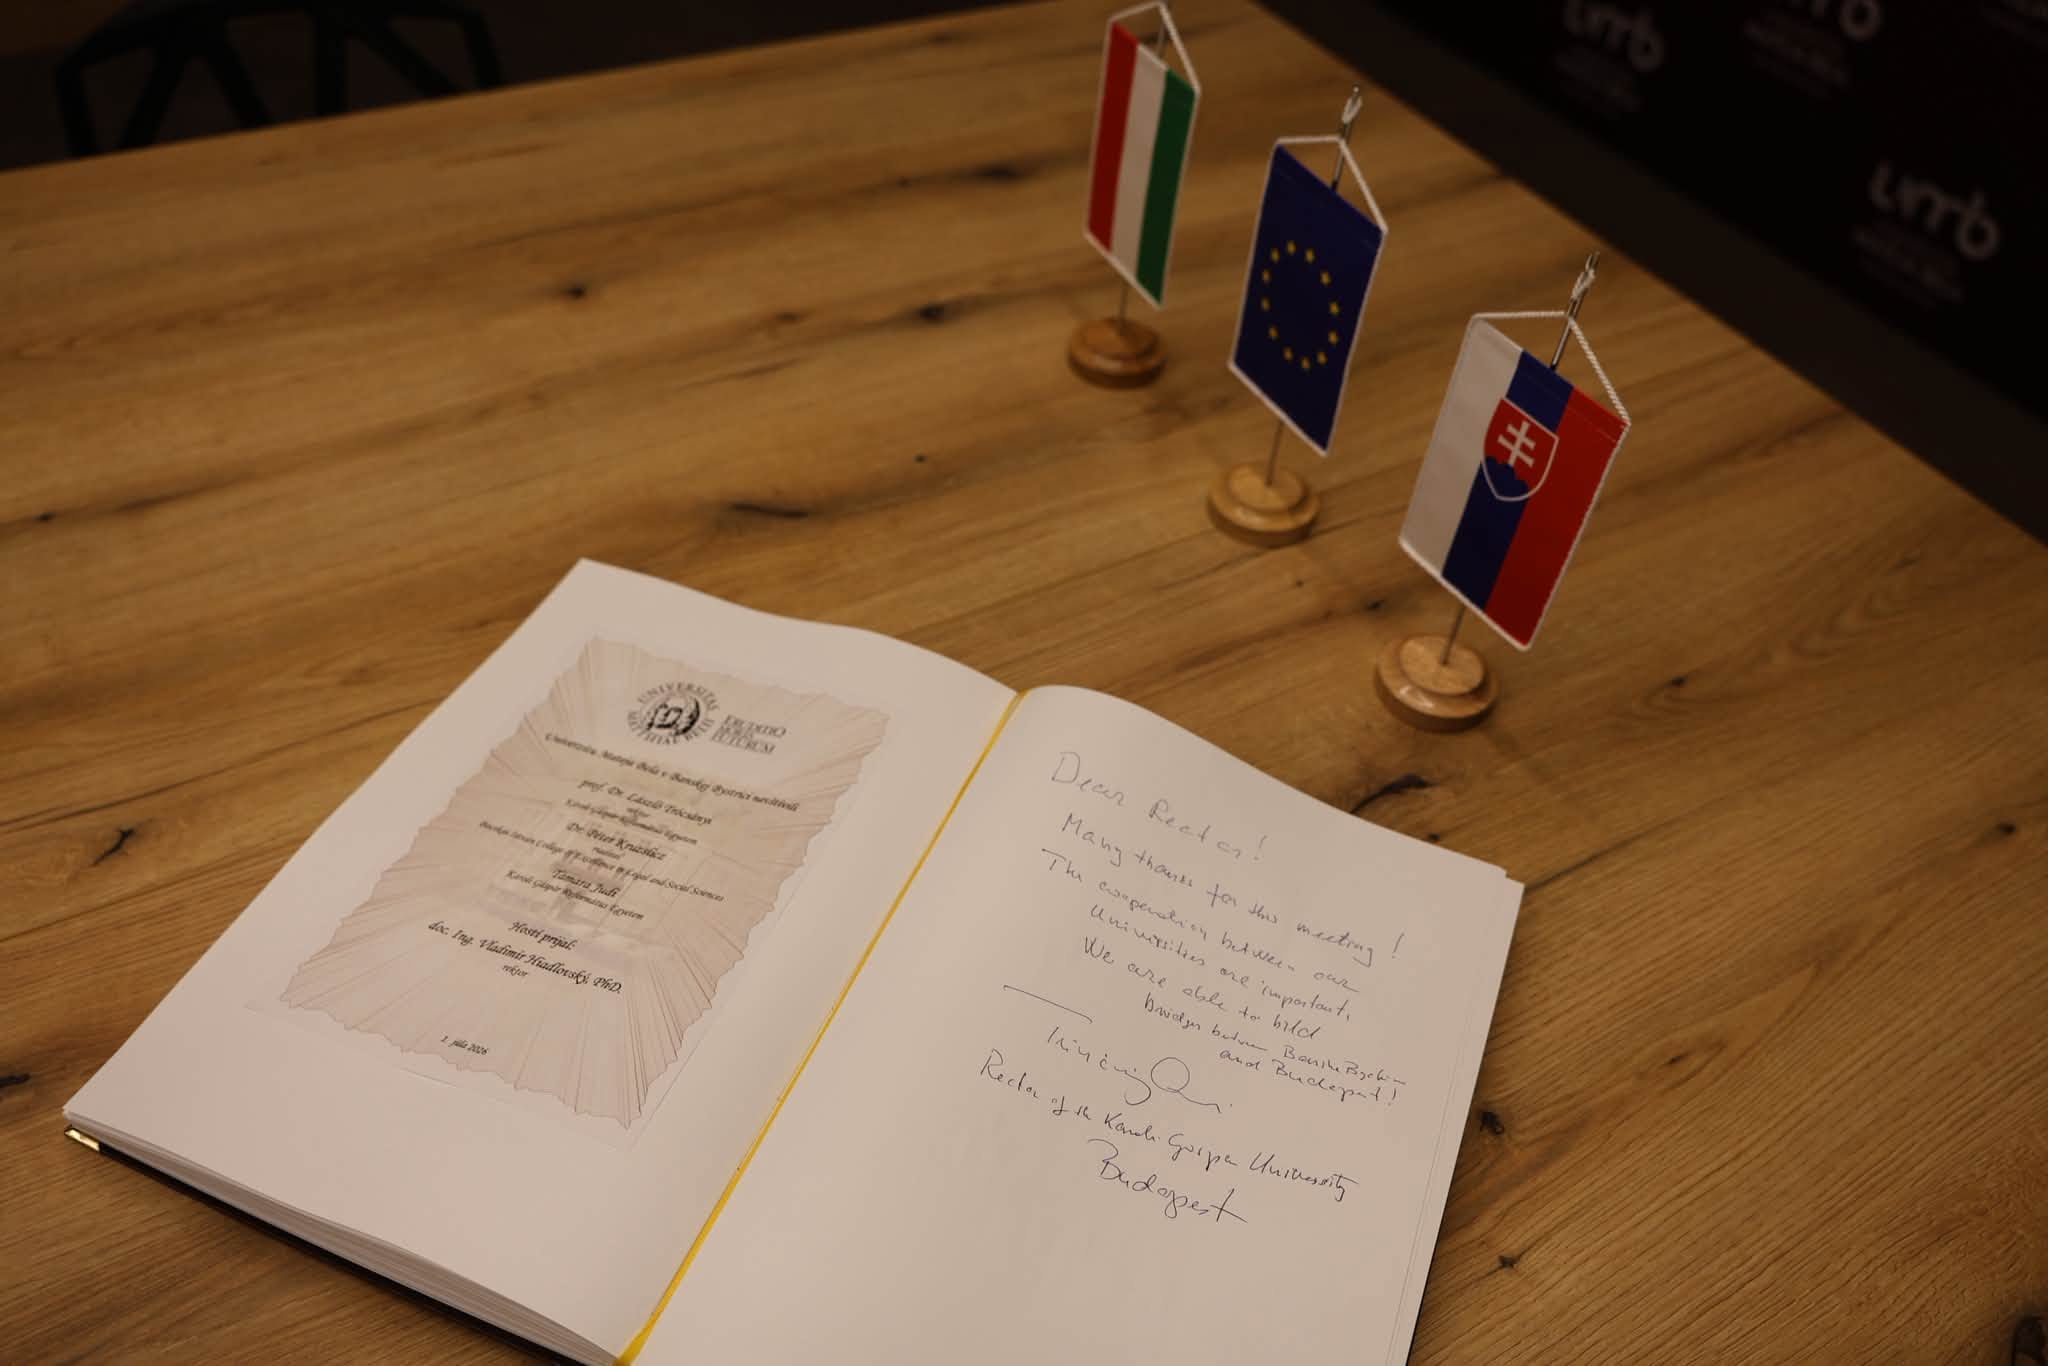 UNIVERSITAS MATTHIAE BELII
ERUDITIO
MORES
FUTURUM
Univerzitu Mateja Bela v Banskej Bystrici navštívili
prof. Dr. László Trócsányi
rektor
Károli Gáspár Református Egyetem
Dr. Péter Kruzslicz
riaditeľ
Bocskai István College of Excellence in Legal and Social Sciences
Tamara Judi
Károli Gáspár Református Egyetem
Hostí prijal:
doc. Ing. Vladimír Hiadlovský, PhD.
rektor
1. júla 2026
Dear Rector!
Many thanks for this meeting!
The cooperation between our
Universities are important.
We are able to bild
bridges between
and Budapest!
Rector of the Károli Gáspár University
Budapest
umb
umb
umb